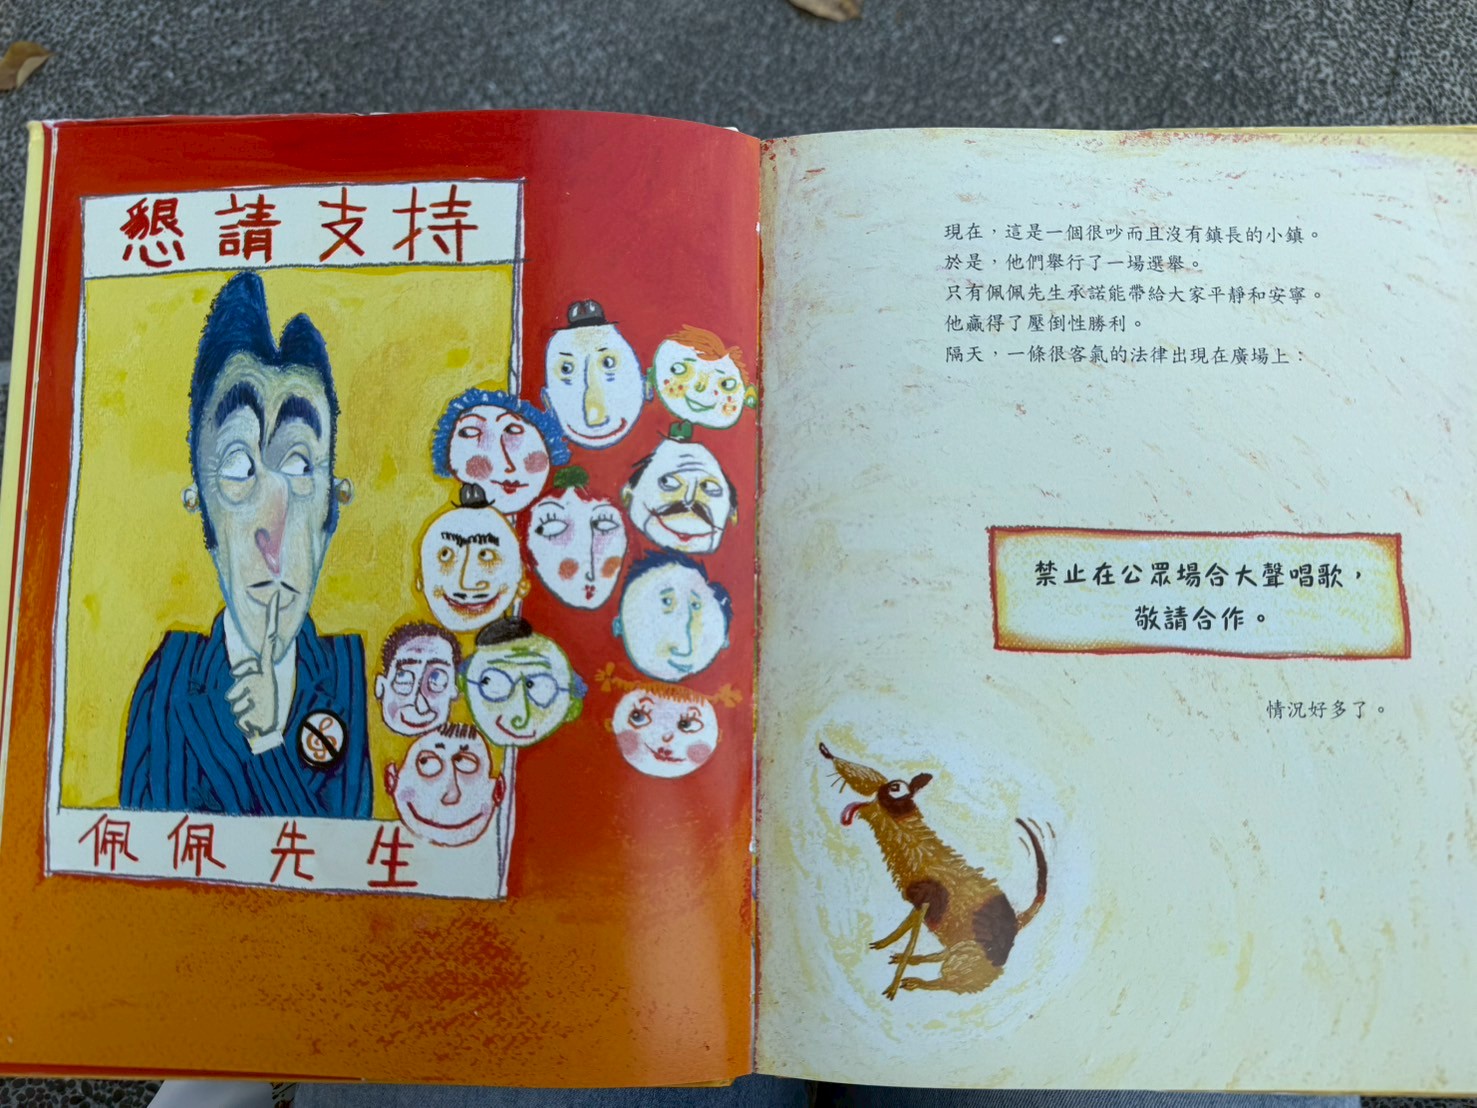 懇請支持
佩佩先生
現在，這是一個很吵而且沒有鎮長的小鎮。
於是，他們舉行了一場選舉。
只有佩佩先生承諾能帶給大家平靜和安寧。
他贏得了壓倒性勝利。
隔天，一條很客氣的法律出現在廣場上：
禁止在公眾場合大聲唱歌，
敬請合作。
情況好多了。